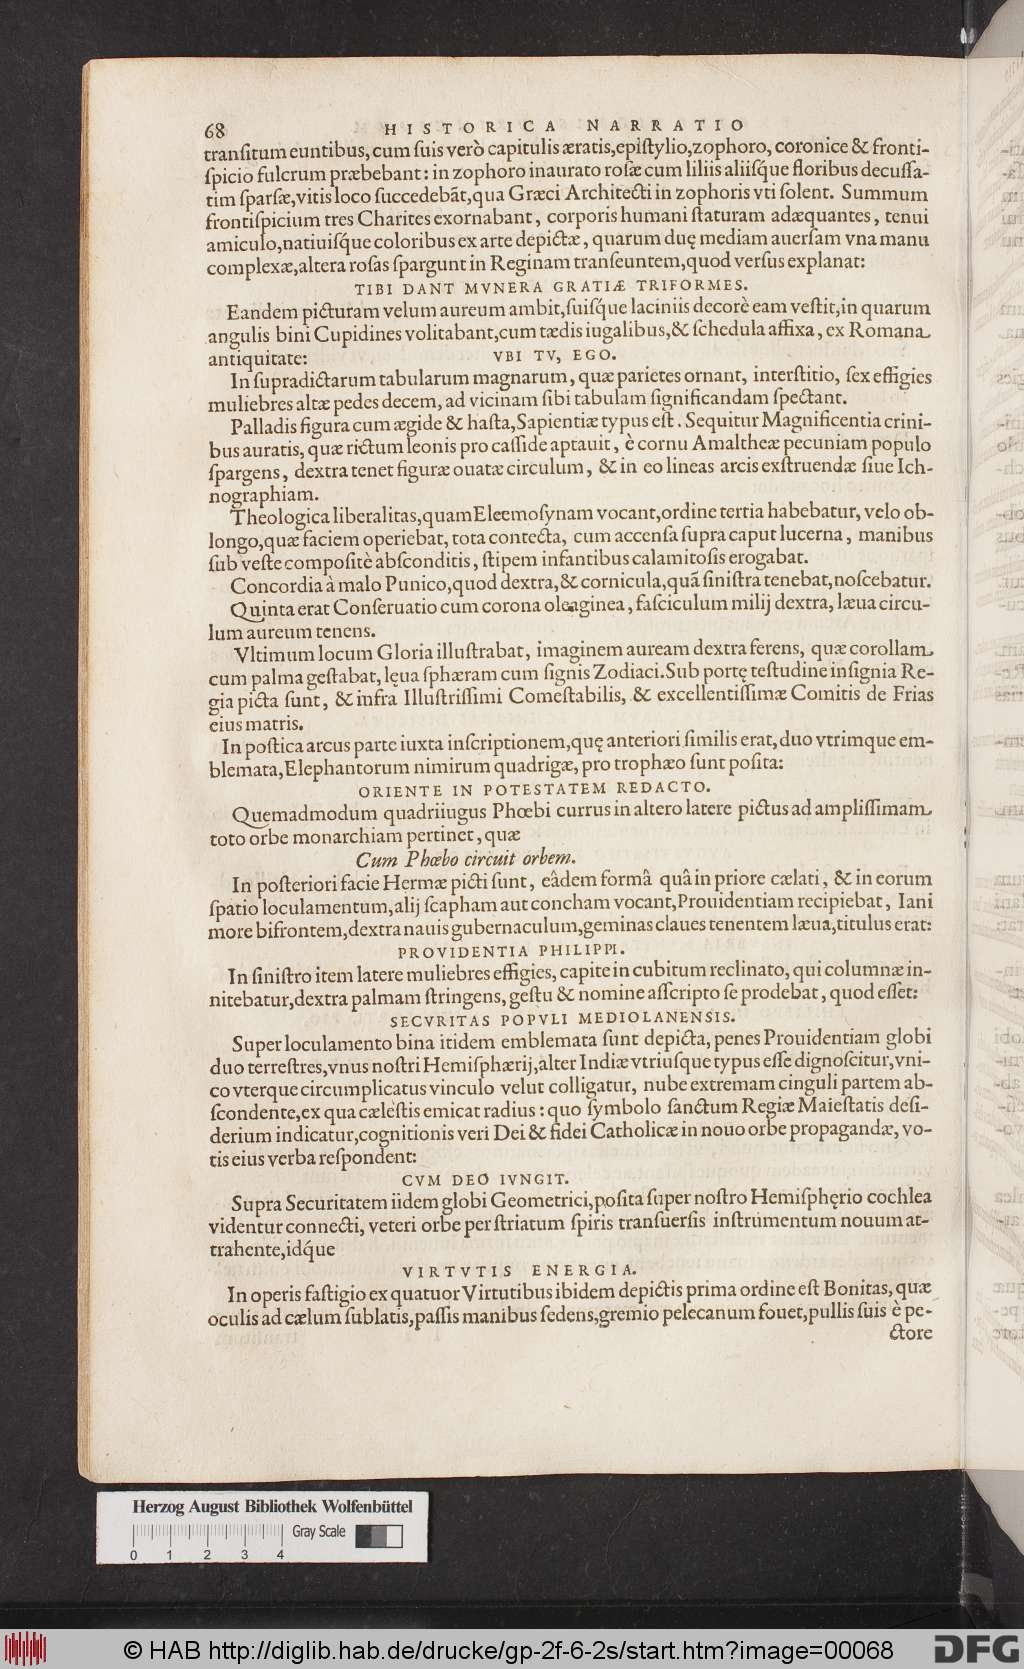 68 HISTORICA NARRATIO
tranſitum euntibus, cum ſuis verò capitulis æratis, epiſtylio, zophoro, coronice & fronti-
ſpicio fulcrum præbebant: in zophoro inaurato roſæ cum liliis aliiſq́ue floribus decuſſa-
tim ſparſæ, vitis loco ſuccedebãt, qua Græci Architecti in zophoris vti ſolent. Summum
frontiſpicium tres Charites exornabant, corporis humani ſtaturam adæquantes, tenui
amiculo, natiuiſq́ue coloribus ex arte depictæ, quarum duę mediam auerſam vna manu
complexæ, altera roſas ſpargunt in Reginam tranſeuntem, quod verſus explanat:
TIBI DANT MVNERA GRATIÆ TRIFORMES.
Eandem picturam velum aureum ambit, ſuiſq́ue laciniis decorè eam veſtit, in quarum
angulis bini Cupidines volitabant, cum tædis iugalibus, & ſchedula affixa, ex Romana
antiquitate: VBI TV, EGO.
In ſupradictarum tabularum magnarum, quæ parietes ornant, interſtitio, ſex effigies
muliebres altæ pedes decem, ad vicinam ſibi tabulam ſignificandam ſpectant.
Palladis figura cum ægide & haſta, Sapientiæ typus eſt. Sequitur Magnificentia crini-
bus auratis, quæ rictum leonis pro caſſide aptauit, è cornu Amaltheæ pecuniam populo
ſpargens, dextra tenet figuræ ouatæ circulum, & in eo lineas arcis exſtruendæ ſiue Ich-
nographiam.
Theologica liberalitas, quam Eleemoſynam vocant, ordine tertia habebatur, velo ob-
longo, quæ faciem operiebat, tota contecta, cum accenſa ſupra caput lucerna, manibus
ſub veſte compoſitè abſconditis, ſtipem infantibus calamitoſis erogabat.
Concordia à malo Punico, quod dextra, & cornicula, quã ſiniſtra tenebat, noſcebatur.
Quinta erat Conſeruatio cum corona oleaginea, faſciculum milij dextra, læua circu-
lum aureum tenens.
Vltimum locum Gloria illuſtrabat, imaginem auream dextra ferens, quæ corollam
cum palma geſtabat, lęua ſphæram cum ſignis Zodiaci. Sub portę teſtudine inſignia Re-
gia picta ſunt, & infrà Illuſtriſſimi Comeſtabilis, & excellentiſſimæ Comitis de Frias
eius matris.
In poſtica arcus parte iuxta inſcriptionem, quę anteriori ſimilis erat, duo vtrimque em-
blemata, Elephantorum nimirum quadrigæ, pro trophæo ſunt poſita:
ORIENTE IN POTESTATEM REDACTO.
Quemadmodum quadriiugus Phœbi currus in altero latere pictus ad ampliſſimam
toto orbe monarchiam pertinet, quæ
Cum Phœbo circuit orbem.
In poſteriori facie Hermæ picti ſunt, eâdem formâ quâ in priore cælati, & in eorum
ſpatio loculamentum, alij ſcapham aut concham vocant, Prouidentiam recipiebat, Iani
more bifrontem, dextra nauis gubernaculum, geminas claues tenentem læua, titulus erat:
PROVIDENTIA PHILIPPI.
In ſiniſtro item latere muliebres effigies, capite in cubitum reclinato, qui columnæ in-
nitebatur, dextra palmam ſtringens, geſtu & nomine aſſcripto ſe prodebat, quod eſſet:
SECVRITAS POPVLI MEDIOLANENSIS.
Super loculamento bina itidem emblemata ſunt depicta, penes Prouidentiam globi
duo terreſtres, vnus noſtri Hemiſphærij, alter Indiæ vtriuſque typus eſſe dignoſcitur, vni-
co vterque circumplicatus vinculo velut colligatur, nube extremam cinguli partem ab-
ſcondente, ex qua cæleſtis emicat radius: quo ſymbolo ſanctum Regiæ Maieſtatis deſi-
derium indicatur, cognitionis veri Dei & fidei Catholicæ in nouo orbe propagandæ, vo-
tis eius verba reſpondent:
CVM DEO IVNGIT.
Supra Securitatem iidem globi Geometrici, poſita ſuper noſtro Hemiſphęrio cochlea
videntur connecti, veteri orbe per ſtriatum ſpiris tranſuerſis inſtrumentum nouum at-
trahente, idq́ue
VIRTVTIS ENERGIA.
In operis faſtigio ex quatuor Virtutibus ibidem depictis prima ordine eſt Bonitas, quæ
oculis ad cælum ſublatis, paſſis manibus ſedens, gremio pelecanum fouet, pullis ſuis è pe-
ctore
Herzog August Bibliothek Wolfenbüttel
Gray Scale
0 1 2 3 4
© HAB http://diglib.hab.de/drucke/gp-2f-6-2s/start.htm?image=00068
DFG